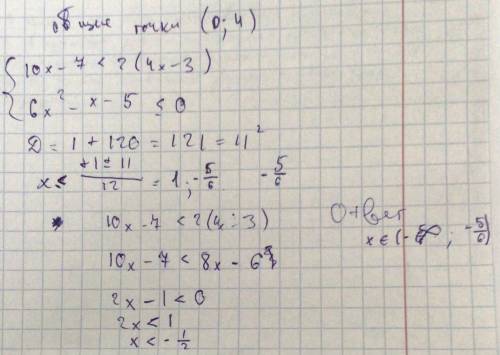 общие точки (0; 4)
{ 10x - 7 < 2(4x - 3)
6x² - x - 5 ≤ 0
D = 1 + 120 = 121 = 11²
x ≤ +1 ± 11 / 12 = 1; -5/6 -5/6
10x - 7 < 2(4x - 3)
10x - 7 < 8x - 6
2x - 1 < 0
2x < 1
x < -1/2
Ответ
x ∈ (-∞; -5/6)